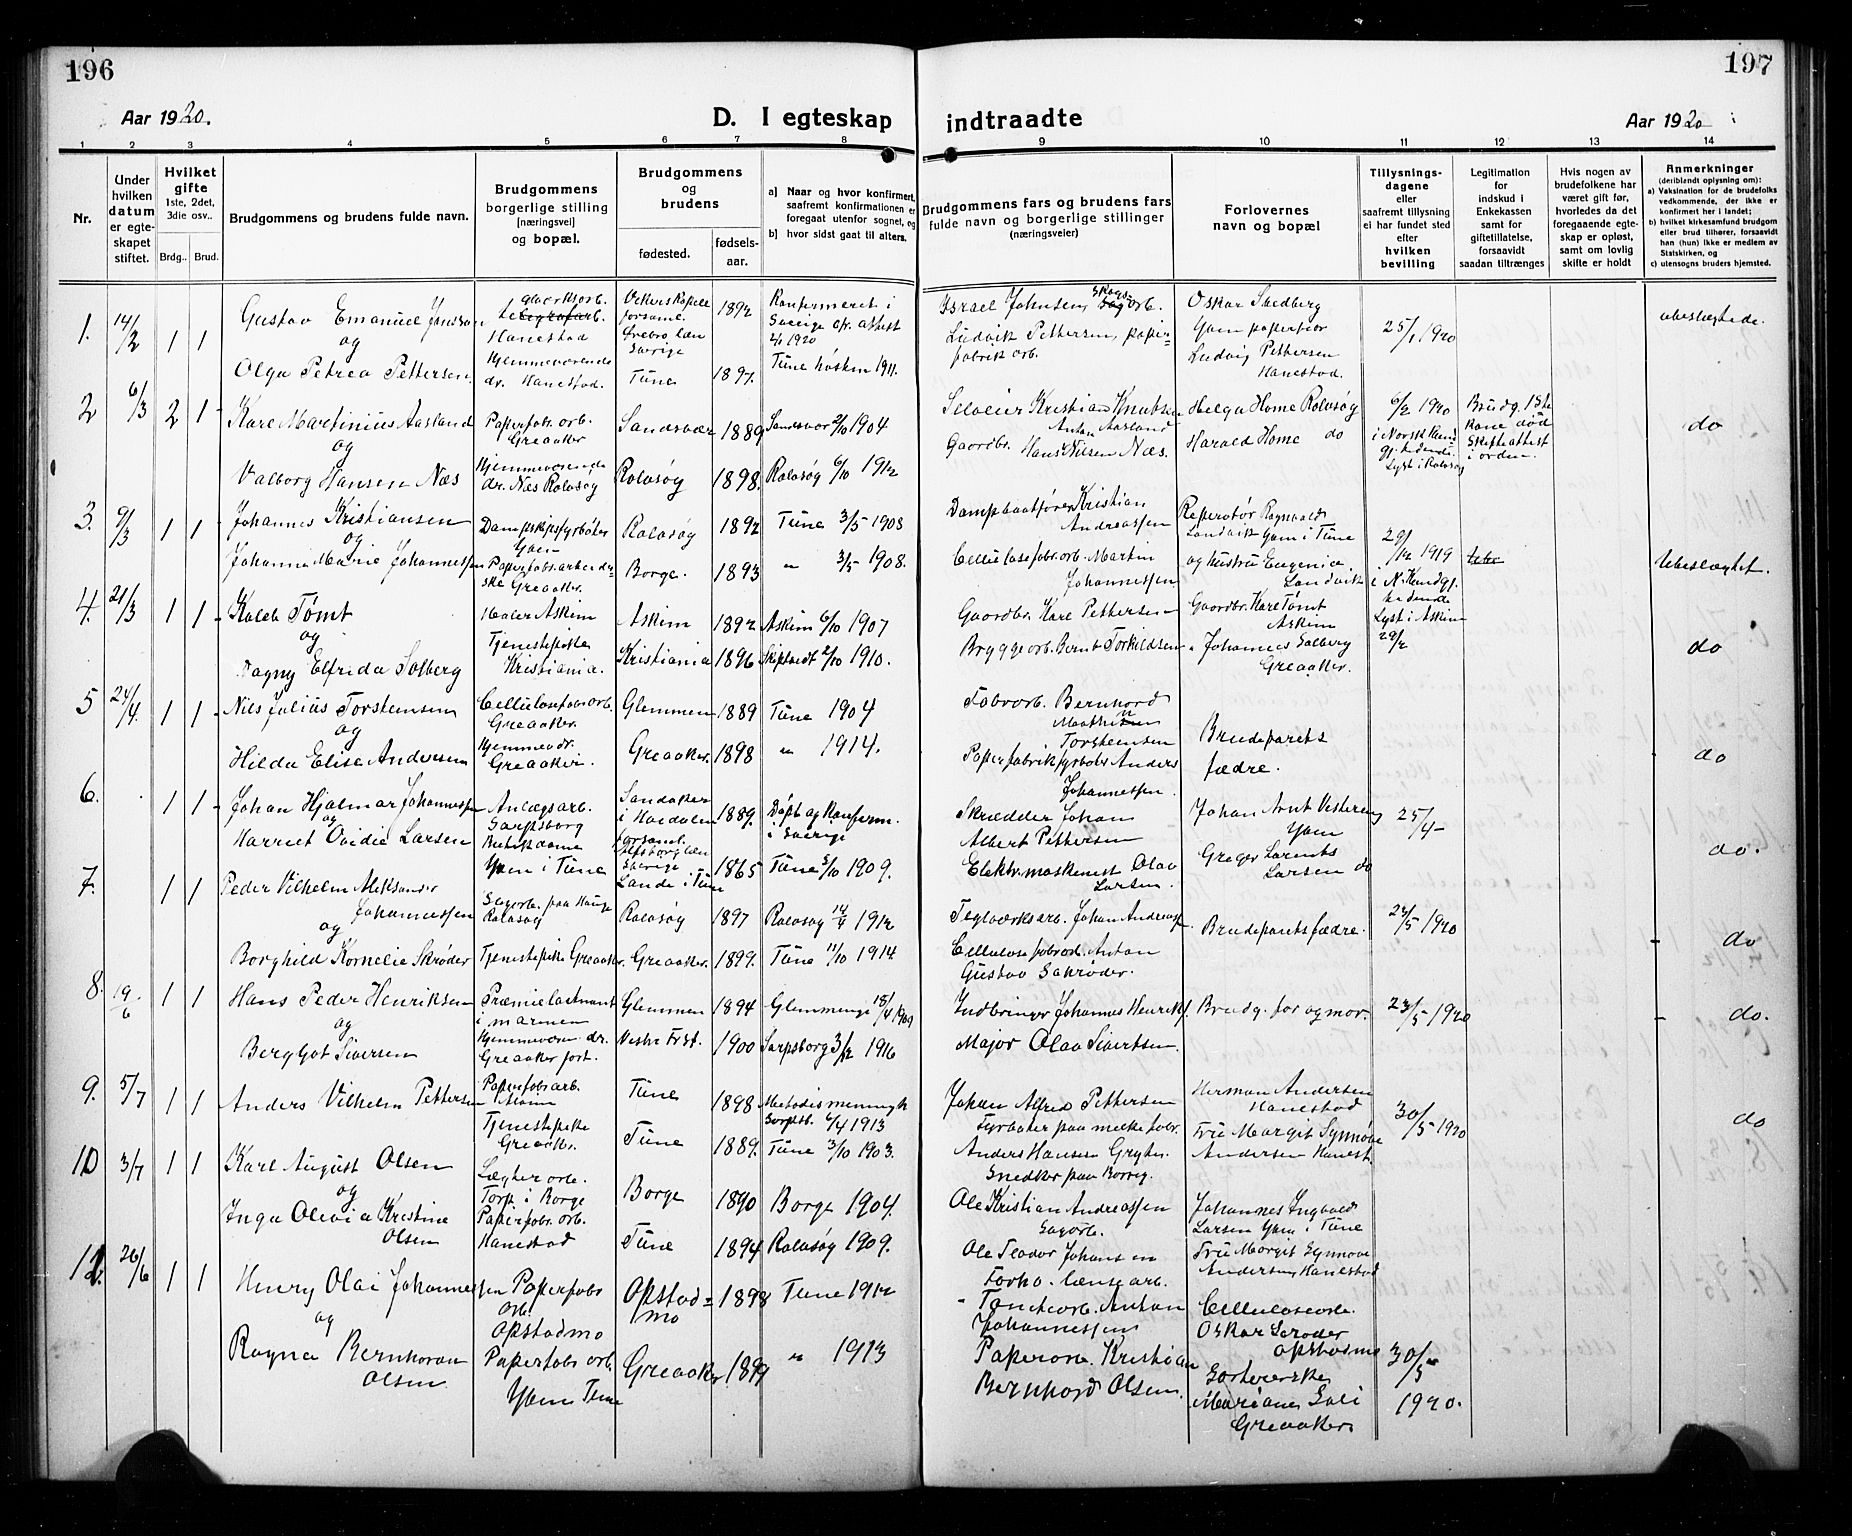 196
197
Aar 1920.
D. I egteskap
indtraadte
Aar 1920
1 2 3 4 5 6 7 8 9 10 11 12 13 14
Nr.
Under
hvilken
datum
er egte-
skapet
stiftet.
Hvilket
gifte
1ste, 2det,
3die osv..
Brdg..
Brud.
Brudgommens og brudens fulde navn.
Brudgommens
borgerlige stilling
(næringsvei)
og bopæl.
Brudgommens
og
brudens
fødested.
fødsels-
aar.
a) Naar og hvor konfirmert,
saafremt konfirmationen er
foregaat utenfor sognet, og
b) hvor sidst gaat til alters.
Brudgommens fars og brudens fars
fulde navn og borgerlige stillinger
(næringsveier)
Forlovernes
navn og bopæl
Tillysnings-
dagene
eller
saafremt tillysning
ei har fundet sted
efter
hvilken
bevilling
Legitimation
for
indskud i
Enkekassen
samt for
giftetillatelse,
forsaavidt
saadan tiltrænges
Hvis nogen av
brudefolkene har
været gift før,
hvorledes da det
foregaaende egte-
skap er opløst,
samt om lovlig
skifte er holdt
Anmerkninger
(deriblandt oplysning om):
a) Vaksination for de brudefolks
vedkommende, der ikke er
konfirmert her i landet;
b) hvilket kirkesamfund brudgom
eller brud tilhører, forsaavidt
han (hun) ikke er medlem av
Statskirken, og
c) utensogns bruders hjemsted.
1. 14/2 1 1 Gustav Emanuel Jonsson
og
Olga Petrea Pettersen
Hanestad
Hjemmeværende
dr. Hanestad.
Örebro län
Sverige
Tune
1892
1897.
Konfirmeret i
Sverige efr. attest
2/1 1920
Tune høsten 1911.
Israel Johnsen, Skogsarb.
Ludvik Pettersen, papir=
fabrik arb.
Oskar Sundberg
Yven papirfør
Ludvig Pettersen
Hanestad.
25/1 1920
ubeslægtede.
2 6/3 2 1 Karl Martinius Aasland
og
Valborg Hansen Næs
Papirfabr. arb.
Greaaker
Hjemmeværende
dr. Næs Rolvsøy
Sandsvær 1889
Rolvsøy 1898.
Sandsvær 2/10 1904
Rolvsøy 6/10 1912
Kristian Knutsen
Aasland
Gaardbr. Hans Nilsen Næs.
Helga Home Rolvsøy
Harald Home do
6/2 1920
i Norsk Kund
gj. tidende.
Lyst i Rolvsøy
Brudg. 1ste
kone død
Skifteattest
i orden.
do
3. 9/3 1 1 Johannes Kristiansen
og
Johanne Marie Johannessen
Dampskipsfyrbøter
Yven
Papirfabr. arbeider-
ske Greaaker.
Rolvsøy 1892
Borge. 1893
Tune 3/5 1908
" 3/5 1908.
Dampbaatfører Kristian
Andreassen
Cellulosefabr. arb. Martin
Johannessen
Reperatør Ragnvald
Landvik Yven i Tune
og hustru Eugenia
Landvik
29/12 1919
i N. Kundgj.
tidende
Ubeslægtet.
4. 21/3 1 1 Kaleb Tømt
og
Dagny Elfrida Solberg
Maler Askim
Tjenestepike
Kristiania.
Askim 1892
Kristiania 1896
Askim 6/10 1907
Skiptvedt 2/10 1910.
Gaardbr. Karl Pettersen
Bryggearb. Bernt Torkildsen
Gaardbr. Karl Tømt
Askim
Johannes Solberg
Greaaker.
Lyst i Askim
29/2
do
5 24/4. 1 1 Nils Julius Torstensen
og
Hilda Elise Andersen
Cellulosefabr. arb.
Greaaker.
Hjemmevdr.
Greaaker.
Glemmen 1889
Greaaker. 1898
Tune 1904
" 1914.
Fabr. arb. Bernhard
Torstensen
Papirfabrikfyrbøt. Anders
Johannessen.
Brudeparets
fædre.
do
6. 1 1 Johan Hjalmar Johannessen
og
Harriet Ovidia Larsen
Anlægsarb.
Sarpsborg
Butikdame
Yven i Tune
Sverige
Lande i Tune
1889.
1865
Døpt og Konfirm.
i Sverige
Tune 3/10 1909.
Skrædder Johan
Albert Pettersen
Elektr. maskenist Olav
Larsen.
Yven
Greger Larents
Larsen do
25/4 -
do.
7. 1 1 Peder Vilhelm Aleksander
Johannessen
og
Borghild Kornelie Skrøder
Sagarb. paa Hauge
Rolvsøy
Tjenestepike Greaaker.
Rolvsøy 1897
Greaaker. 1899.
Rolvsøy 1912
Tune 11/10 1914
Teglverksarb. Johan Andreass
Cellulosefabr. Anton
Gustav Schrøder.
Brudeparets fædre.
1920
do
8. 19/6 1 1 Hans Peder Henriksen
og
Bergljot Siversen
Premierløitnant
i marinen
Hjemmeværen. dr.
Greaaker fort.
Glemmen 1894
1900
Glemmenge 18/4 1909
Sarpsborg 3/12 1916
Indbringer Johannes Henriks.
Major Olav Sivertsen.
Brudg. far og mor.
23/5 1920
do.
9. 5/7 1 1 Anders Vilhelm Pettersen
Papirfabr arb.
Tjenestepike
Greaaker.
Tune 1898
Tune 1889.
Metodistmenigh
Sarpsb. 6/4 1913
Tune 3/10 1903.
Johan Alfred Pettersen
Fyrbøter paa melkefabr.
Anders Hansen
Snedker paa Borreg.
Herman Andersen
Hanestad
Fru Margit Synnøve
Andersen Hanest.
30/5 1920
do
10 3/7 1 1 Karl August Olsen
og
Inga Olivia Kristine
Olsen
Torp i Borge
Papirfabr. arb.
Hanestad
Borge 1890
Tune 1894
Borge 1904.
Rolvsøy 1909.
Ole Kristian Andreassen
Sagarb.
Ole Teodor Johansen
Torho. lensearb.
Johannes Ingvald
Larsen Yven i Tune
Fru Margit Synnøve
Andersen, Hanestad
11. 26/6 1 1 Henry Olai Johannessen
og
Ragna Bernhardine
Olsen
Papirfabr
arb.
Opstadmo
Papirfabr arb.
Yven Tune
Opstad=
mo 1898
Greaaker. 1899
Tune 1912
" 1913
Tomtearb. Anton
Johannessen
Papirarb. Kristian
Bernhard Olsen.
Cellulosearb.
Oskar Scrøder
Opstadmo
Sorterske
Mariane Soli
Greaaker
30/5 -
1920.